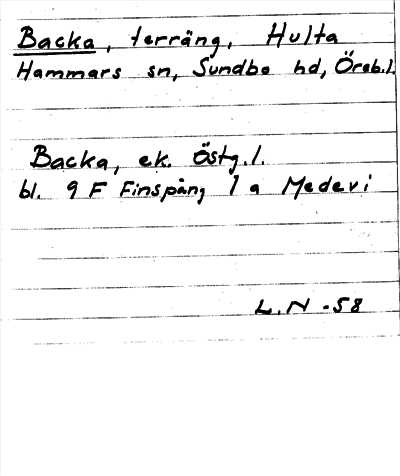 Backa, terräng, Hulta
Hammars sn, Sundbo hd, Öreb.l.
Backa, ek. Östg.l.
bl. 9 F Finspång 1 a Medevi
L.N -58